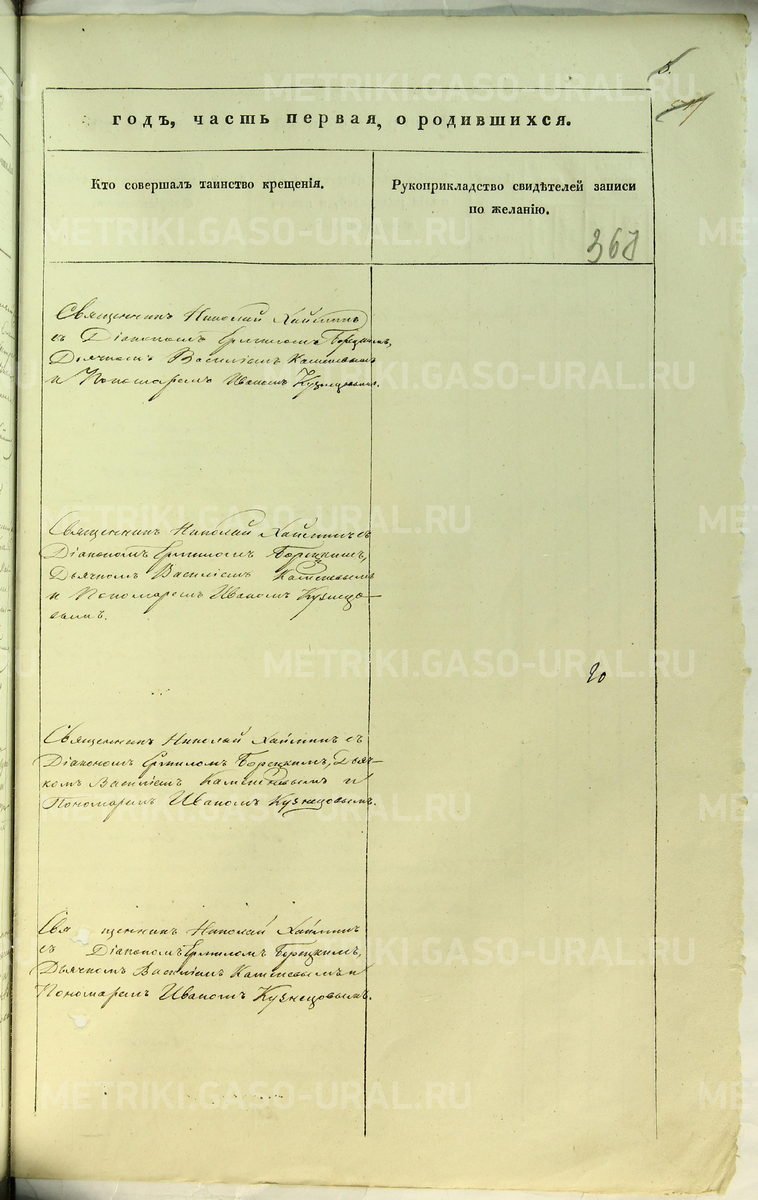 годъ, часть первая, о родившихся.
Кто совершалъ таинство крещенія.
Рукоприкладство свидѣтелей записи
по желанію.
368
Священникъ Николай Хайминъ
съ Діакономъ Ермиломъ Борецкимъ,
Дьячкомъ Василіемъ
и Пономаремъ Иваномъ Кузнецовымъ.
Священникъ Николай Хайминъ съ
Діакономъ Ермиломъ Борецкимъ,
Дьячкомъ Василіемъ
и Пономаремъ Иваномъ Кузнецо-
вымъ.
20
Священникъ Николай Хайминъ съ
Діакономъ Ермиломъ Борецкимъ, Дьяч-
комъ Василіемъ и
Пономаремъ Иваномъ Кузнецовымъ.
Священникъ Николай Хайминъ
съ Діакономъ Ермиломъ Борецкимъ,
Дьячкомъ Василіемъ и
Пономаремъ Иваномъ Кузнецовымъ.
METRIKI.GASO-URAL.RU